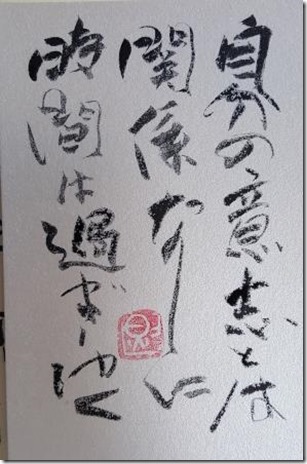 自分の意志とは
関係なしに
時間は過ぎゆく